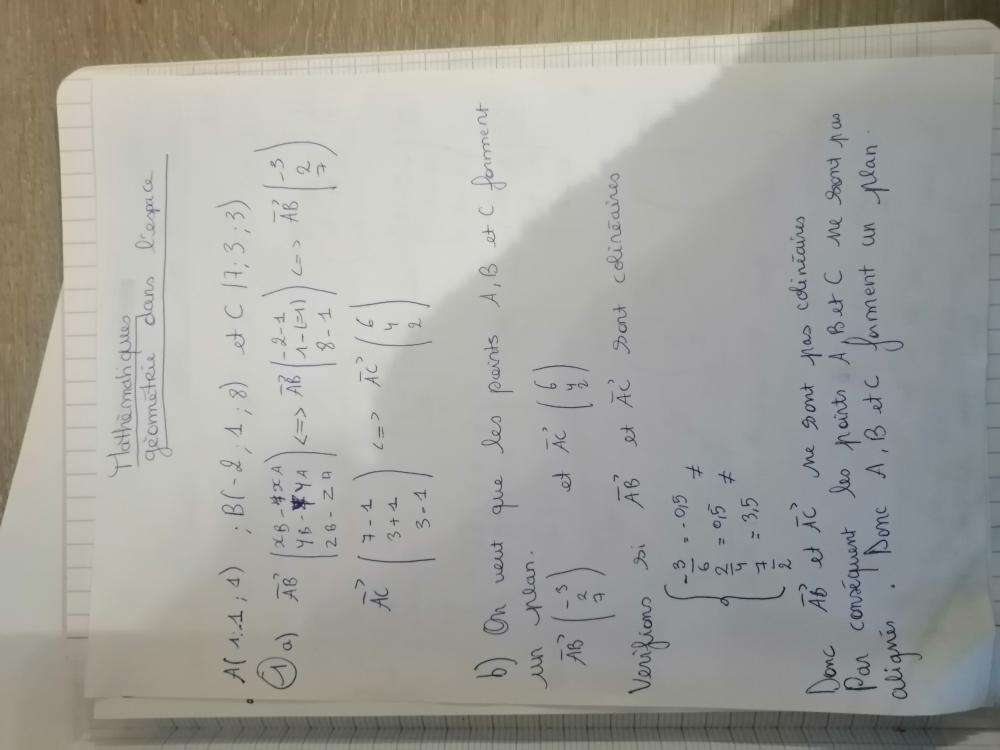 Mathématiques
géométrie dans l'espace
A(1;-1;1) ; B(-2;1;8) et C(7;3;3)
① a) AB⃗ (xB - xA / yB - yA / zB - zA) <=> AB⃗ (-2-1 / 1-(-1) / 8-1) <=> AB⃗ (-3 / 2 / 7)
AC⃗ (7-1 / 3+1 / 3-1) <=> AC⃗ (6 / 4 / 2)
b) On veut que les points A, B et C forment
un plan.
AB⃗ (-3 / 2 / 7) et AC⃗ (6 / 4 / 2)
Verifions si AB⃗ et AC⃗ sont colinéaires
{ -3/6 = -0,5 ≠
2/4 = 0,5 ≠
7/2 = 3,5
Donc AB⃗ et AC⃗ ne sont pas colinéaires
Par conséquent les points A, B et C ne sont pas
alignés. Donc A, B et C forment un plan.